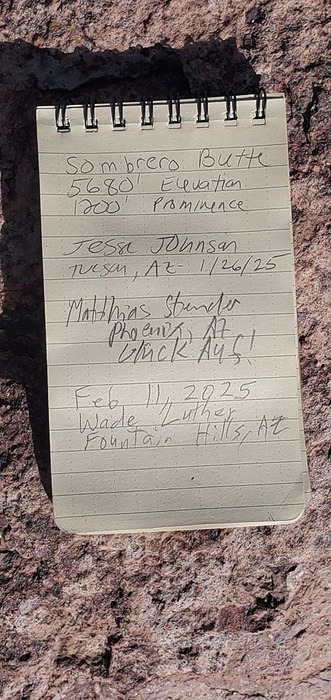 Sombrero Butte
5680' Elevation
1200' Prominence
Jesse Johnson
Tucson, AZ - 1/26/25
Matthias
Phoenix, AZ
Glück Auf!
Feb 11, 2025
Wade Luther
Fountain Hills, AZ